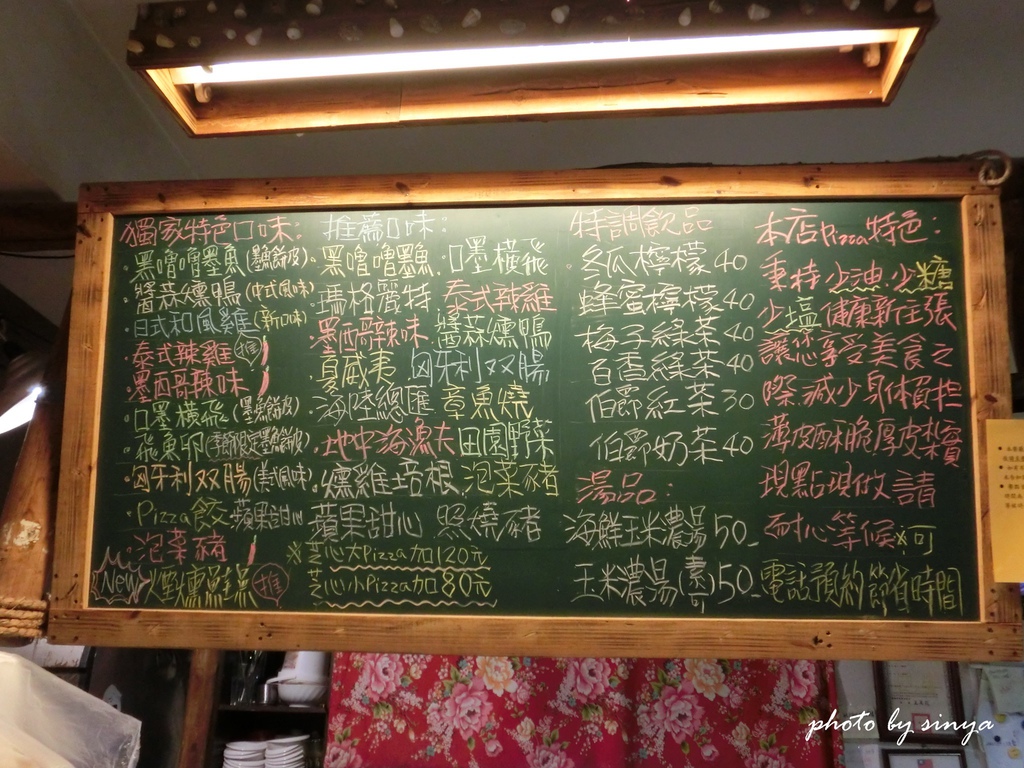 獨家特色口味:
·黑嚕嚕墨魚(墨魚餅皮)
·醬蒜燻鴨(中式風味)
·日式和風雞(新口味)
·泰式辣雞 推
·墨西哥辣味
·口墨橫飛(墨魚餅皮)
·飛魚卵(墨魚餅皮)
·匈牙利双腸(美式風味)
·Pizza餃·蘋果甜心
·泡菜豬
New 煙燻鮭魚 推
推薦口味:
·黑嚕嚕墨魚·口墨橫飛
·瑪格麗特 泰式辣雞
墨西哥辣味 醬蒜燻鴨
·夏威夷 匈牙利双腸
·海陸總匯 章魚燒
·地中海漁夫 田園野菜
·燻雞培根 泡菜豬
蘋果甜心 照燒豬
※芝心大Pizza加120元
芝心小Pizza加80元
特調飲品
冬瓜檸檬40
蜂蜜檸檬40
梅子綠茶40
百香綠茶40
伯爵紅茶30
伯爵奶茶40
湯品:
海鮮玉米濃湯50-
玉米濃湯(素可)50-
本店Pizza特色:
秉持少油.少糖
少塩健康新主張
讓您享受美食之
際.減少身体負担
薄皮酥脆厚皮紮實
現點現做請
耐心等候※可
電話預約節省時間
photo by sinya